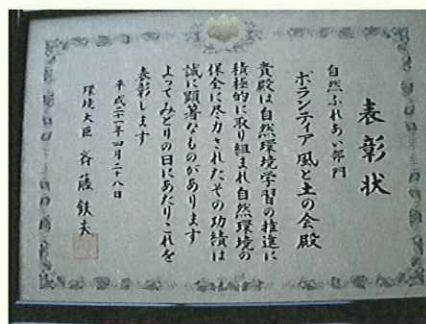 表彰状
自然ふれあい部門
ボランティア風と土の会殿
貴殿は自然環境学習の推進に
積極的に取り組まれ自然環境の
保全に尽力されたその功績は
誠に顕著なものがあります
よってみどりの日にあたりこれを
表彰します
平成二十一年四月二十八日
環境大臣 斉藤鉄夫